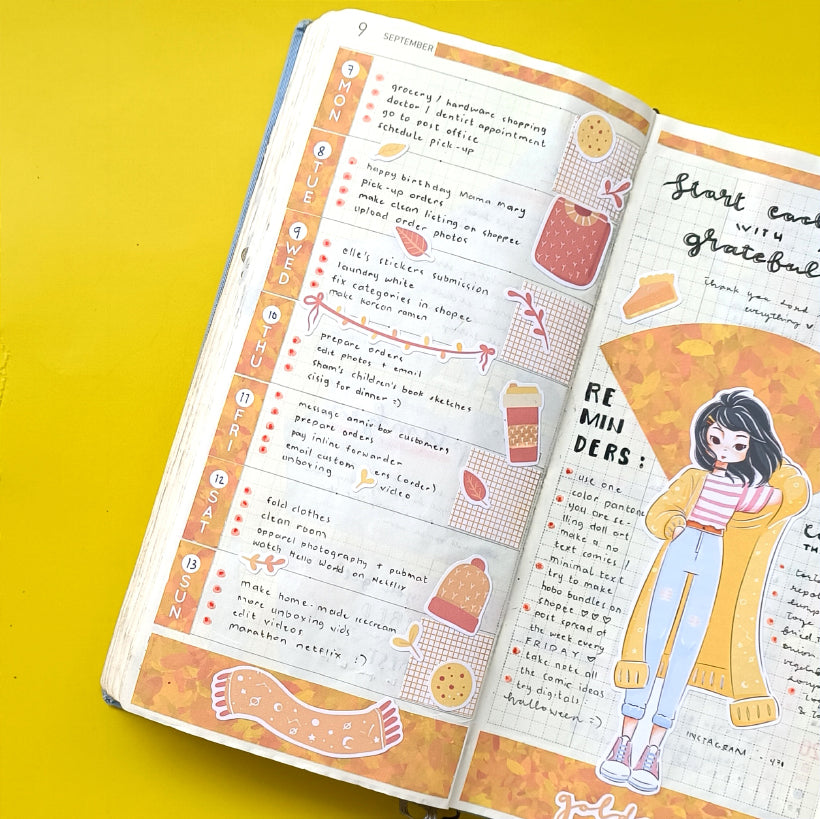 9 SEPTEMBER
7 MON
grocery / hardware shopping
doctor / dentist appointment
go to post office
schedule pick-up
8 TUE
happy birthday Mama Mary
pick-up orders
make clean listing on shopee
upload order photos
9 WED
elle's stickers submission
laundry white
fix categories in shopee
make korean ramen
10 THU
prepare orders
edit photos + email
sham's children's book sketches
sisig for dinner :)
11 FRI
message anniv box customers
prepare orders
pay inline forwarder
email custom ers (order)
unboxing video
12 SAT
fold clothes
clean room
apparel photography + pubmat
watch Hello World on Netflix
13 SUN
make home-made icecream
more unboxing vids
edit videos
marathon netflix :)
Start each
WITH
grateful
thank you Lord
everything
RE
MIN
DERS:
use one
color pantone
you are se-
lling doll art
make a no
text comics /
minimal text
try to make
hobo bundles on
shopee ♡♡♡
post spread of
the week every
FRIDAY ♡
take note all
the comic ideas
try digitals
halloween =)
INSTAGRAM
gold